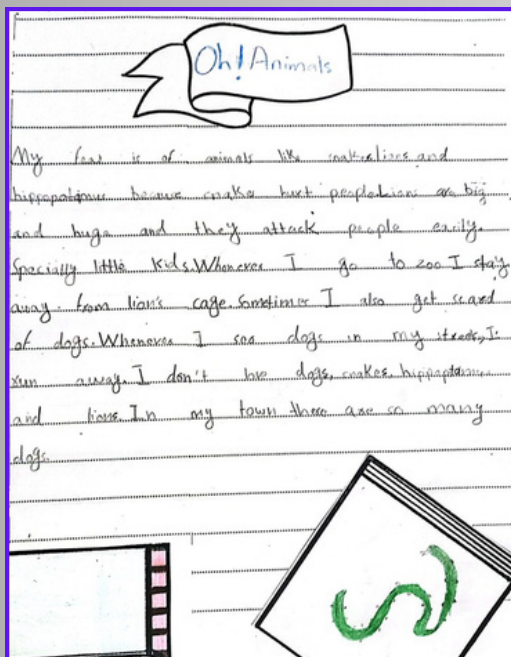 Oh! Animals
My fear is of animals like snakes lions and
hippopotimus because snakes hurt people Lions are big
and huge and they attack people easily.
Specially little kids. Whenever I go to zoo I stay
away from lion's cage. Sometimes I also get scared
of dogs. Whenever I see dogs in my street, I
run away. I don't like dogs, snakes, hippoptamus
and lions. In my town there are so many
dogs.